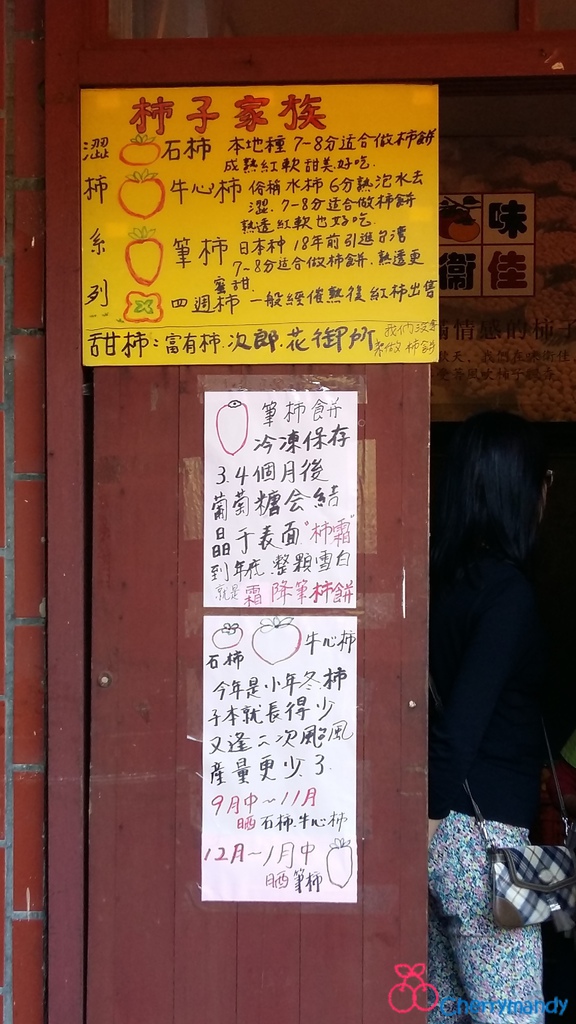 柿子家族
澀柿系列
石柿 本地種 7~8分适合做柿餅
成熟紅軟甜美好吃.
牛心柿 俗稱水柿 6分熟泡水去
澀. 7~8分适合做柿餅
熟透紅軟也好吃.
筆柿 日本种 18年前引進台湾
7~8分适合做柿餅. 熟透更
蜜甜.
四週柿 一般經催熟後紅柿出售
甜柿:富有柿.次郎.花御所
我們沒拿
來做柿餅
味
衛佳
情感的柿子
筆柿餅
冷凍保存
3.4個月後
葡萄糖会結
晶于表面"柿霜"
到年底整顆雪白
就是霜降筆柿餅
石柿
牛心柿
今年是小年冬柿
子本就長得少
又逢二次颱風
產量更少了.
9月中~11月
晒石柿.牛心柿
12月~1月中
晒筆柿
Cherrymandy